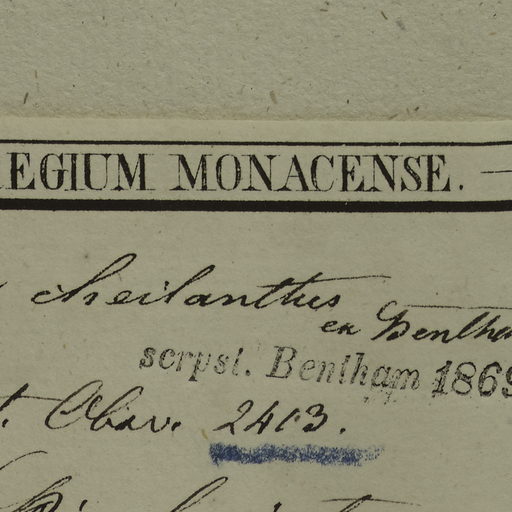 REGIUM MONACENSE.
cheilanthus
ex Bentha
scrpst. Bentham 1869
t. Obsv. 2413.